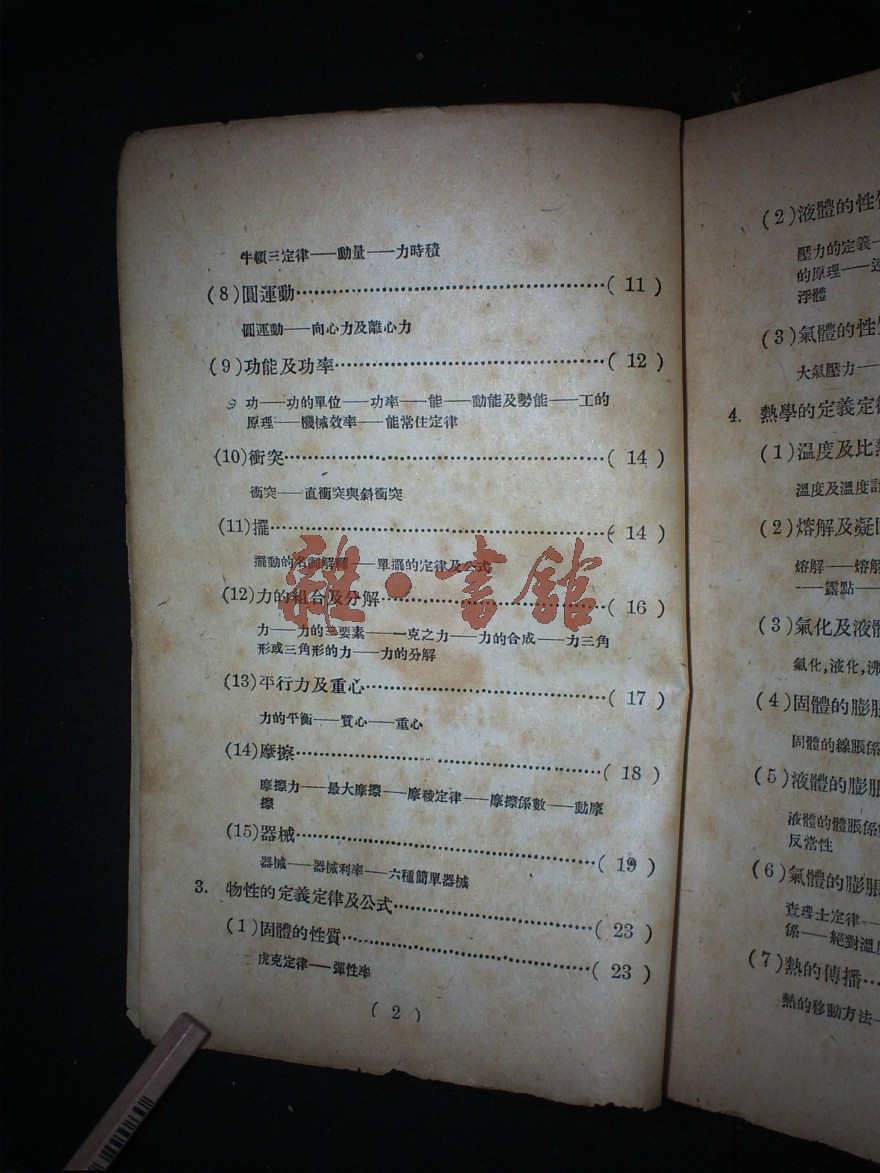 牛頓三定律——動量——力時積
(8)圓運動……………………(11)
圓運動——向心力及離心力
(9)功能及功率……………………(12)
功——功的單位——功率——能——動能及勢能——工的
原理——機械效率——能常住定律
(10)衝突……………………(14)
衝突——直衝突與斜衝突
(11)擺……………………(14)
擺動的名詞解釋——單擺的定律及公式
(12)力的組合及分解……………………(16)
力——力的三要素——一克之力——力的合成——力三角
形或三角形的力——力的分解
(13)平行力及重心……………………(17)
力的平衡——質心——重心
(14)摩擦……………………(18)
摩擦力——最大摩擦——摩稜定律——摩擦係數——動摩
擦
(15)器械……………………(19)
器械——器械利率——六種簡單器械
3. 物性的定義定律及公式……………………(23)
(1)固體的性質……………………(23)
虎克定律——彈性率
(2)
雜·書館
(2)液體的性
壓力的定義—
的原理——
浮體
(3)氣體的性
大氣壓力——
4. 熱學的定義定
(1)溫度及比
溫度及溫度
(2)熔解及凝
熔解——熔
——露點——
(3)氣化及液
氣化,液化,沸
(4)固體的膨
固體的線脹係
(5)液體的膨
液體的體脹係
反常性
(6)氣體的膨
查理士定律—
係——絕對溫
(7)熱的傳播…
熱的移動方法—